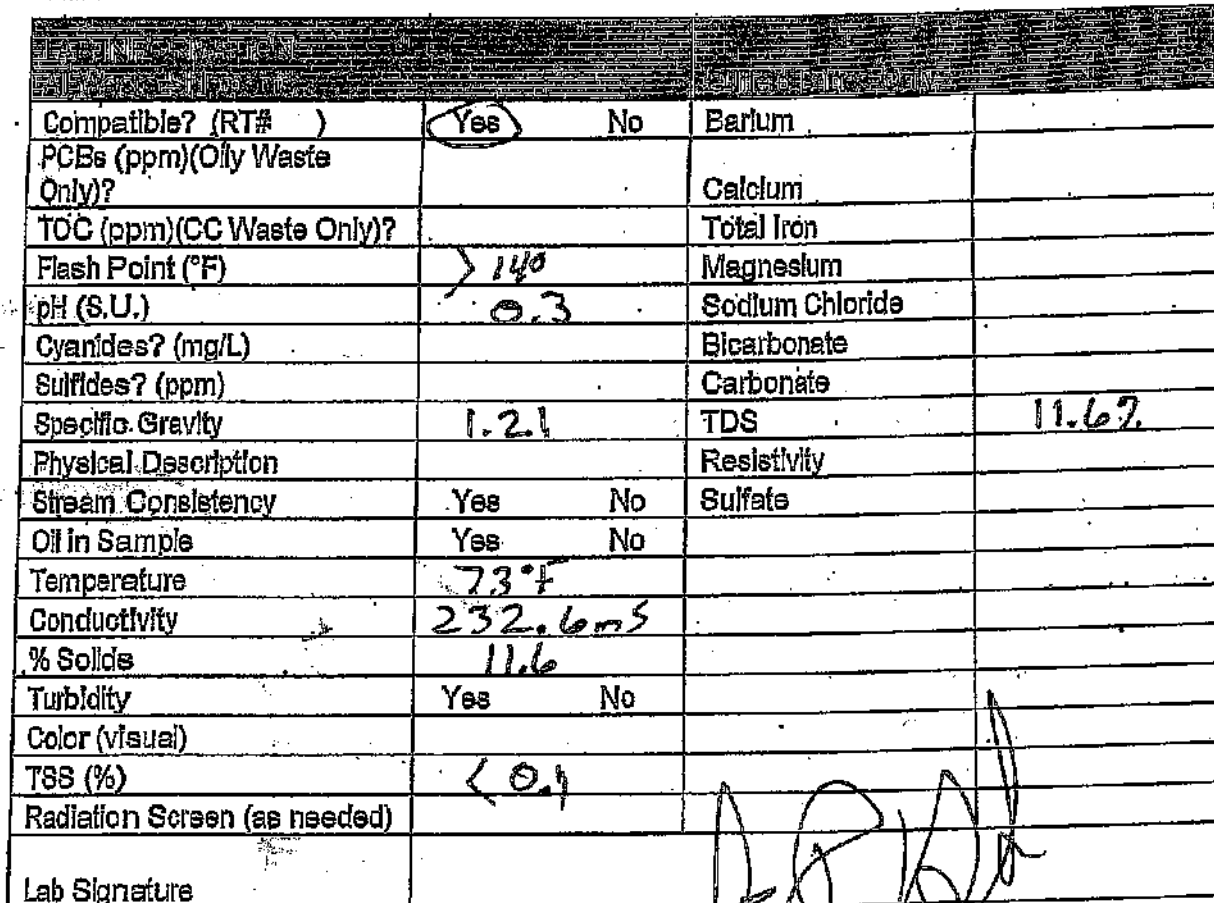 LAB INFORMATION
Compatible? (RT# ) Yes No Barium
PCBs (ppm)(Oily Waste
Only)? Calcium
TOC (ppm)(CC Waste Only)? Total Iron
Flash Point (°F) > 140 Magnesium
pH (S.U.) 0.3 Sodium Chloride
Cyanides? (mg/L) Bicarbonate
Sulfides? (ppm) Carbonate
Specific Gravity 1.21 TDS 11.6%
Physical Description Resistivity
Stream Consistency Yes No Sulfate
Oil in Sample Yes No
Temperature 73°F
Conductivity 232.6mS
% Solids 11.6
Turbidity Yes No
Color (visual)
TSS (%) < 0.1
Radiation Screen (as needed)
Lab Signature